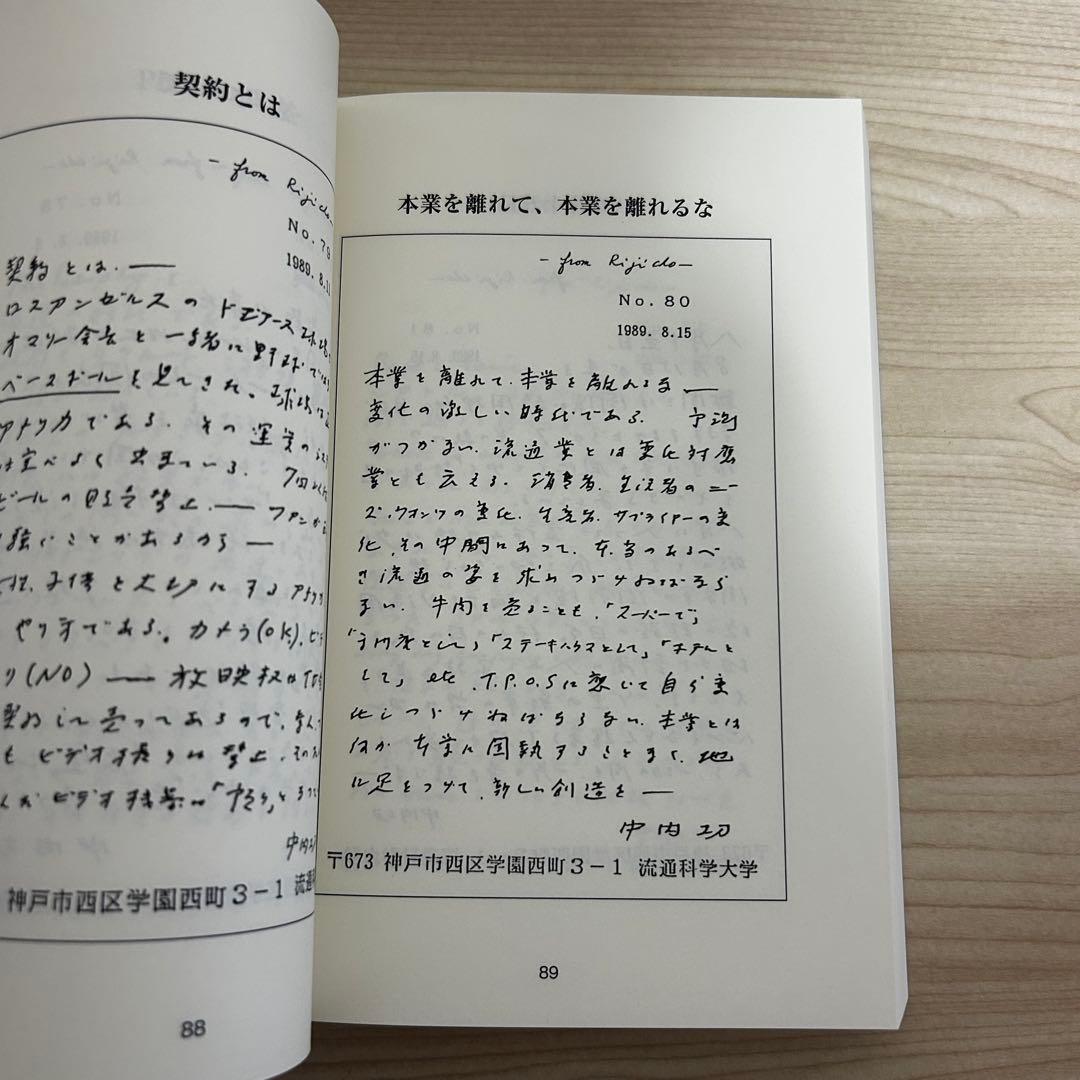 契約とは
- from Rijicho -
No. 79
1989. 8.1
契約とは. ー
ロスアンゼルスのドジャース球場
オマリー会長と一緒に野球では
ベースボールを見てきれ、球場は
である. その運営の
はよく出来ている. 7回
ビールの販売禁止. ー ファンが
強いことがあるから ー
子供と大切にする
である。カメラ(OK). ビデ
(NO) ー 放映权は
契約して売ってあるので、
もビデオ撮りは禁止.
ビデオ
中内功
神戸市西区学園西町3−1 流通科
88
本業を離れて、本業を離れるな
- from Rijicho -
No. 80
1989. 8.15
本業を離れて、本業を離れるな ー
変化の激しい時代である. 予測
がつかない. 流通業とは変化対応
業とも云える. 消費者. 生活者のニー
ズ、ウオンツの変化. 生産者. サプライヤーの変
化、その中間にあって. 本当のあるべ
き流通の姿を求めつづけねばなら
ない. 牛肉を売ることも.「スーパーで」
「専門店として」「ステーキハウスとして」「ホテルと
して」 etc. T.P.O.Sに応じて自ら変
化しつづけねばならない. 本業とは
何か 本業に固執することなく. 地
に足をつけて、新しい創造を ー
中内功
〒673 神戸市西区学園西町3−1 流通科学大学
89